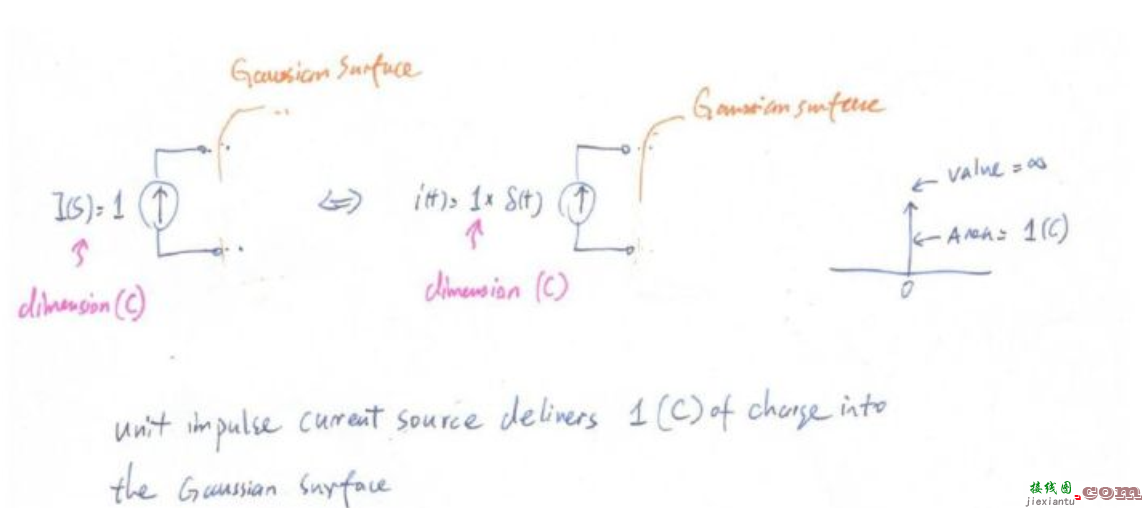 Gaussian Surface
Gaussian surface
I(S)= 1
⇔
i(t)= 1 × δ(t)
← value = ∞
← Area = 1(C)
0
dimension (C)
dimension (C)
unit impulse current source delivers 1(C) of charge into
the Gaussian Surface
接线图.com
jiexiantu